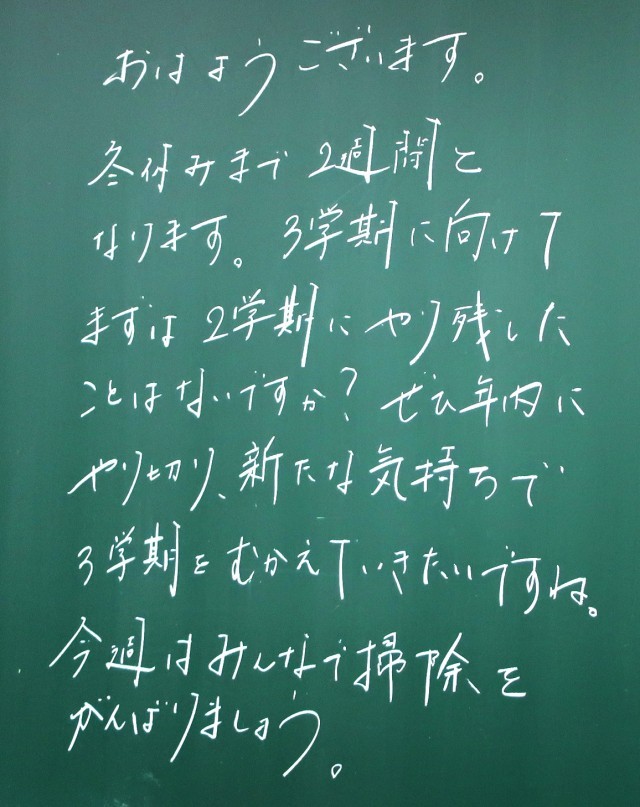 おはようございます。
冬休みまで2週間と
なります。3学期に向けて
まずは2学期にやり残した
ことはないですか？ぜひ年内に
やり切り、新たな気持ちで
3学期をむかえていきたいですね。
今週はみんなで掃除を
がんばりましょう。